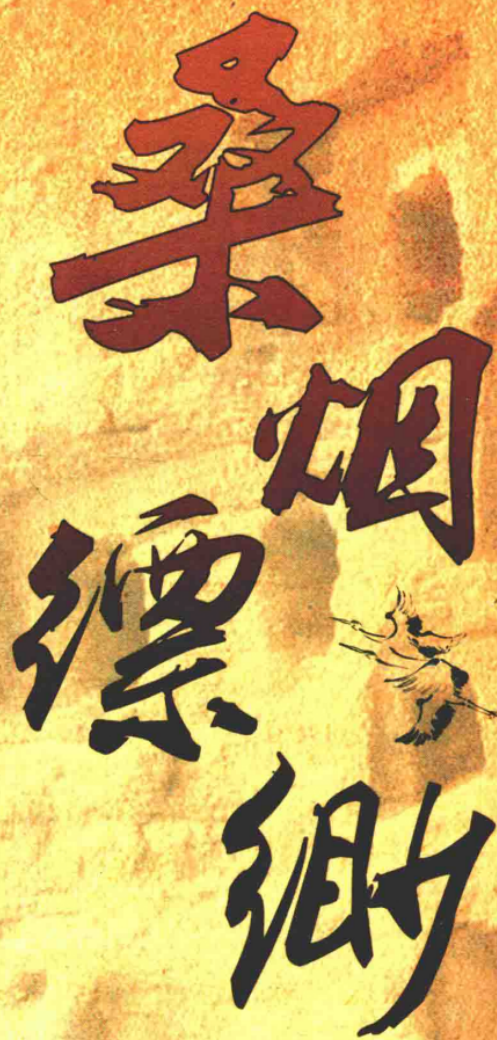 桑烟缥缈